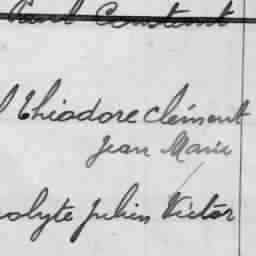 Paul Constant
Théodore Clément
Jean Marie
olyte Julien Victor